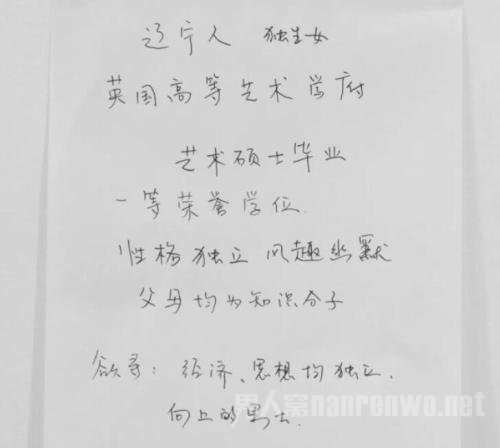 辽宁人 独生女
英国高等艺术学府
艺术硕士毕业
一等荣誉学位.
性格独立 风趣幽默
父母均为知识分子
欲寻: 经济、思想均独立.
向上的男士.
男人窝nanrenwo.net